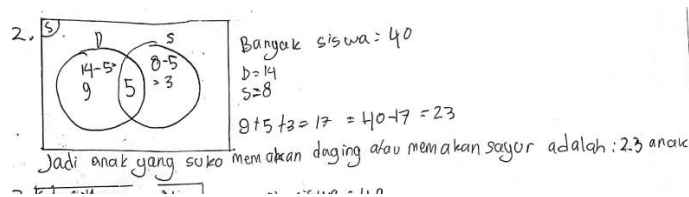 2. S
D S
14-5=
9
5
8-5
=3
Banyak siswa = 40
D=14
S=8
9+5+3=17 = 40-17=23
Jadi anak yang suko memakan daging atau memakan sayur adalah : 23 anak